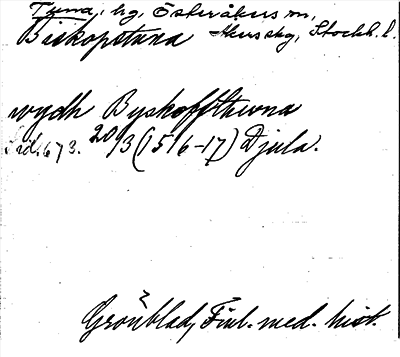 Tuna, hg, Österåkers sn,
Biskopstuna Åkers skg, Stockh. l.
wydh Byskoffthwna
sid. 673. 20/3 (1516-17) Djula.
Grönblad, Finl. med. hist.